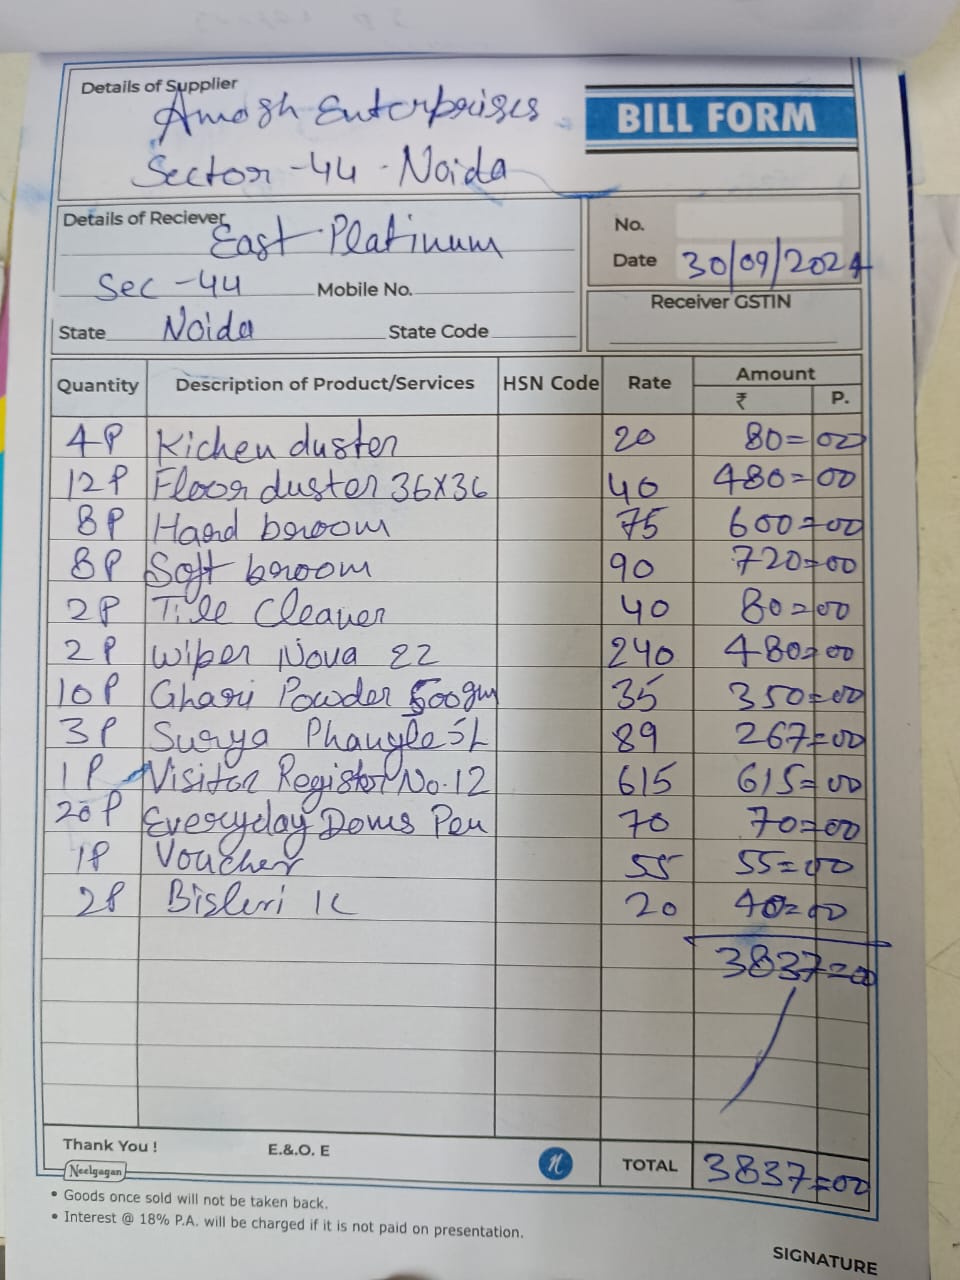 Details of Supplier
Amogh Enterprises
BILL FORM
Sector-44-Noida
Details of Reciever
East Platinum
No.
Sec-44
Mobile No.
Date 30/09/2024
Receiver GSTIN
State Noida State Code
Quantity Description of Product/Services HSN Code Rate Amount
₹ P.
4P Kichen duster 20 80=00
12P Floor duster 36x36 40 480=00
8P Hard broom 75 600=00
8P Soft broom 90 720=00
2P Tile Cleaner 40 80=00
2P Wiper Nova 22 240 480=00
10P Ghari Powder 500gm 35 350=00
3P Surya Phangle 5L 89 267=00
1P Visitor Register No.12 615 615=00
20P Everyday Doms Pen 70 70=00
1P Voucher 55 55=00
2P Bisleri 1L 20 40=00
3837=00
Thank You !
E.&.O. E
n
TOTAL 3837=00
Neelgagan
• Goods once sold will not be taken back.
• Interest @ 18% P.A. will be charged if it is not paid on presentation.
SIGNATURE